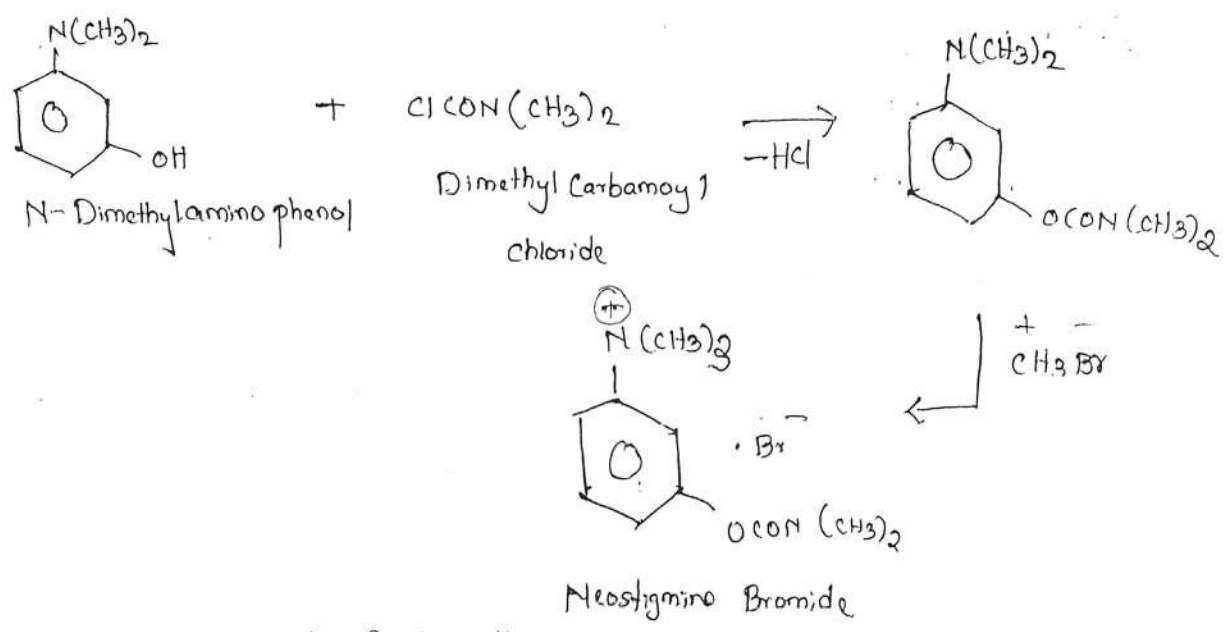 N(CH3)2
OH
N-Dimethylamino phenol
+
ClCON(CH3)2
Dimethyl Carbamoyl
chloride
-HCl
N(CH3)2
OCON(CH3)2
+ -
CH3 Br
+
N(CH3)3
. Br-
OCON (CH3)2
Neostigmine Bromide